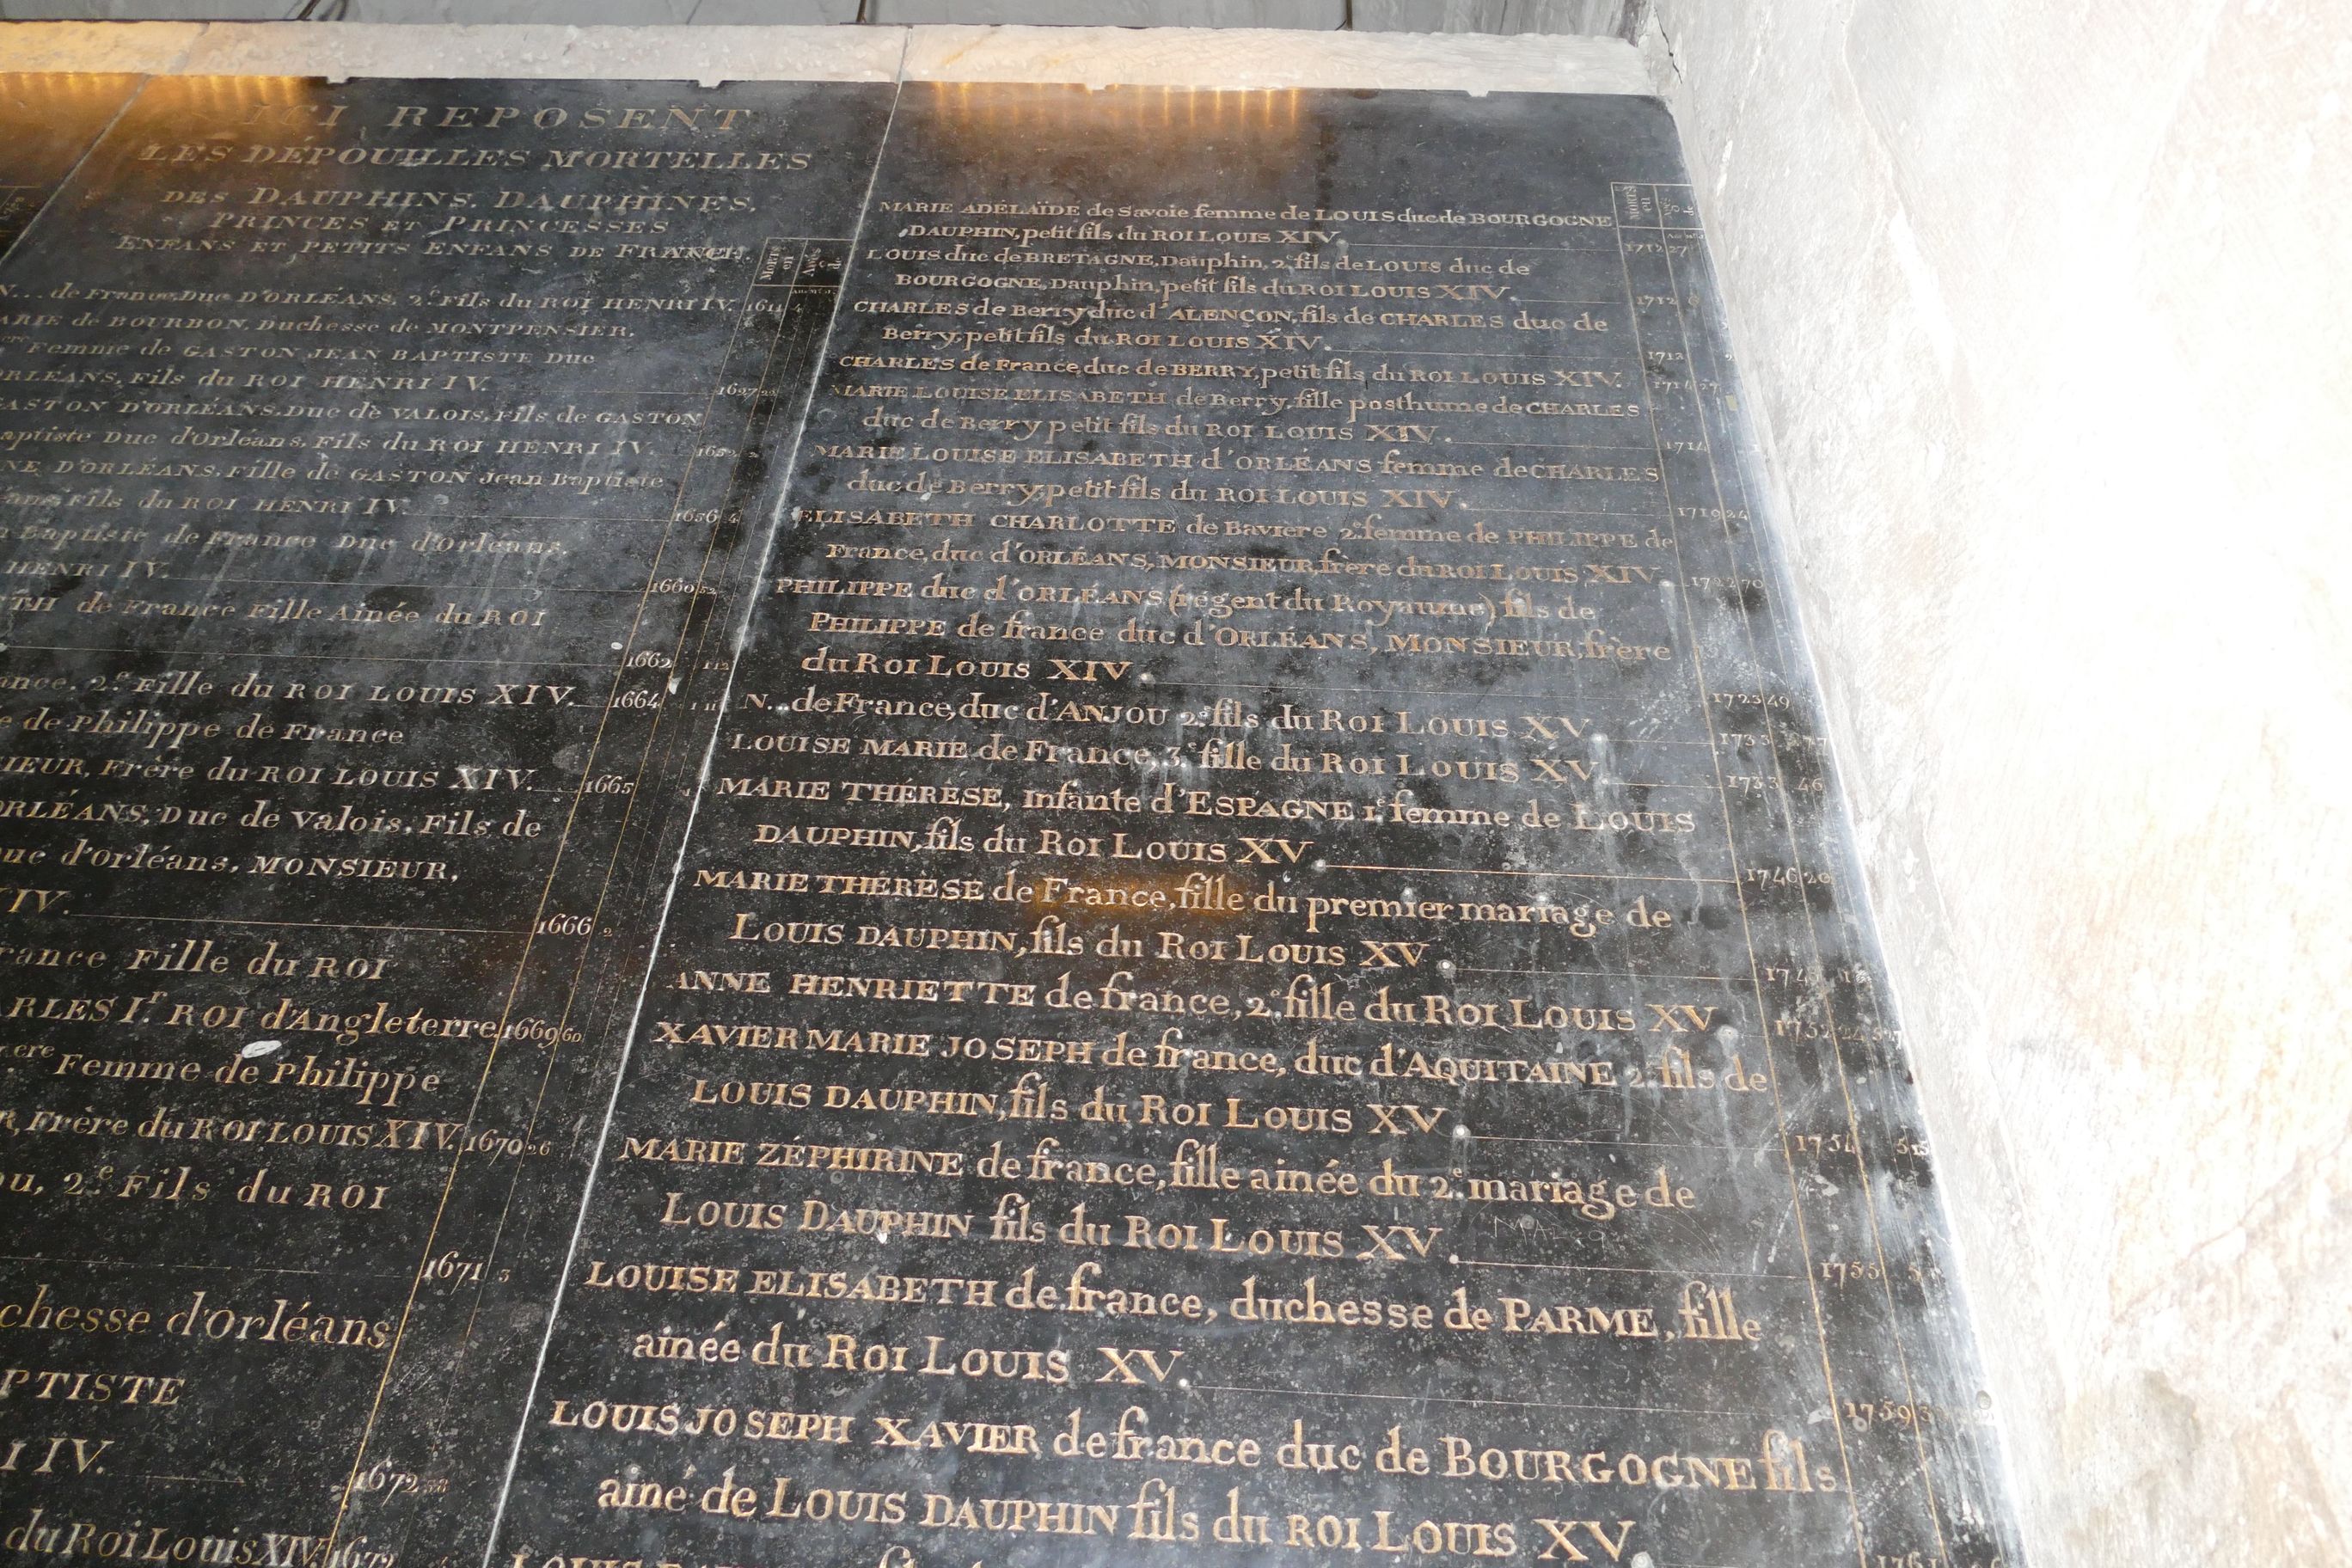 ICI REPOSENT
LES DÉPOUILLES MORTELLES
DES DAUPHINS, DAUPHINES,
PRINCES ET PRINCESSES
ENFANS ET PETITS ENFANS DE FRANCE.
MORTS en
N... de France, Duc D'ORLÉANS, 2.e Fils du ROI HENRI IV. 1611 4
MARIE de BOURBON, Duchesse de MONTPENSIER,
Femme de GASTON JEAN BAPTISTE Duc
ORLÉANS, Fils du ROI HENRI IV. 1627 22
GASTON D'ORLÉANS, Duc de VALOIS, Fils de GASTON
Baptiste Duc d'Orléans, Fils du ROI HENRI IV. 1652 2
NE D'ORLÉANS, Fille de GASTON Jean Baptiste
Fils du ROI HENRI IV. 1656 4
Baptiste de France Duc d'Orléans,
HENRI IV. 1660 52
TH de France Fille Ainée du ROI
1662
ance, 2.e Fille du ROI LOUIS XIV. 1664
e de Philippe de France
IEUR, Frère du ROI LOUIS XIV. 1665
ORLÉANS, Duc de Valois, Fils de
ue d'orléans, MONSIEUR,
IV. 1666 2
rance Fille du ROI
ARLES I.r ROI d'Angleterre 1669 60
ere Femme de Philippe
R, Frère du ROI LOUIS XIV. 1670 26
ou, 2.e Fils du ROI
1671 3
chesse d'orléans
PTISTE
I IV. 1672 58
du Roi Louis XIV. 1672
MORTS en
MARIE ADÉLAÏDE de Savoie femme de LOUIS duc de BOURGOGNE
DAUPHIN, petit fils du ROI LOUIS XIV. 1712 27
LOUIS duc de BRETAGNE, Dauphin, 2.e fils de LOUIS duc de
BOURGOGNE, Dauphin, petit fils du ROI LOUIS XIV. 1712
CHARLES de Berry duc d'ALENÇON, fils de CHARLES duc de
Berry, petit fils du ROI LOUIS XIV. 1713
CHARLES de France, duc de BERRY, petit fils du ROI LOUIS XIV. 1714 27
MARIE LOUISE ELISABETH de Berry, fille posthume de CHARLES
duc de Berry petit fils du ROI LOUIS XIV. 1714
MARIE LOUISE ELISABETH d'ORLÉANS femme de CHARLES
duc de Berry, petit fils du ROI LOUIS XIV. 1719 24
ELISABETH CHARLOTTE de Bavière 2.e femme de PHILIPPE de
France, duc d'ORLÉANS, MONSIEUR, frère du ROI LOUIS XIV. 1722 70
PHILIPPE duc d'ORLÉANS (régent du Royaume) fils de
PHILIPPE de france duc d'ORLÉANS, MONSIEUR, frère
du ROI LOUIS XIV. 1723 49
N... de France, duc d'ANJOU 2.e fils du ROI LOUIS XV. 1733
LOUISE MARIE de France, 3.e fille du ROI LOUIS XV. 1733
MARIE THÉRÈSE, infante d'ESPAGNE 1.e femme de LOUIS
DAUPHIN, fils du ROI LOUIS XV. 1746 20
MARIE THÉRÈSE de France, fille du premier mariage de
LOUIS DAUPHIN, fils du ROI LOUIS XV.
ANNE HENRIETTE de france, 2.e fille du ROI LOUIS XV. 1752 24
XAVIER MARIE JOSEPH de france, duc d'AQUITAINE 2.e fils de
LOUIS DAUPHIN, fils du ROI LOUIS XV. 1754 5 15
MARIE ZÉPHIRINE de france, fille ainée du 2.e mariage de
LOUIS DAUPHIN fils du ROI LOUIS XV. 1755
LOUISE ELISABETH de france, duchesse de PARME, fille
ainée du ROI LOUIS XV. 1759
LOUIS JOSEPH XAVIER de france duc de BOURGOGNE fils
ainé de LOUIS DAUPHIN fils du ROI LOUIS XV. 1761